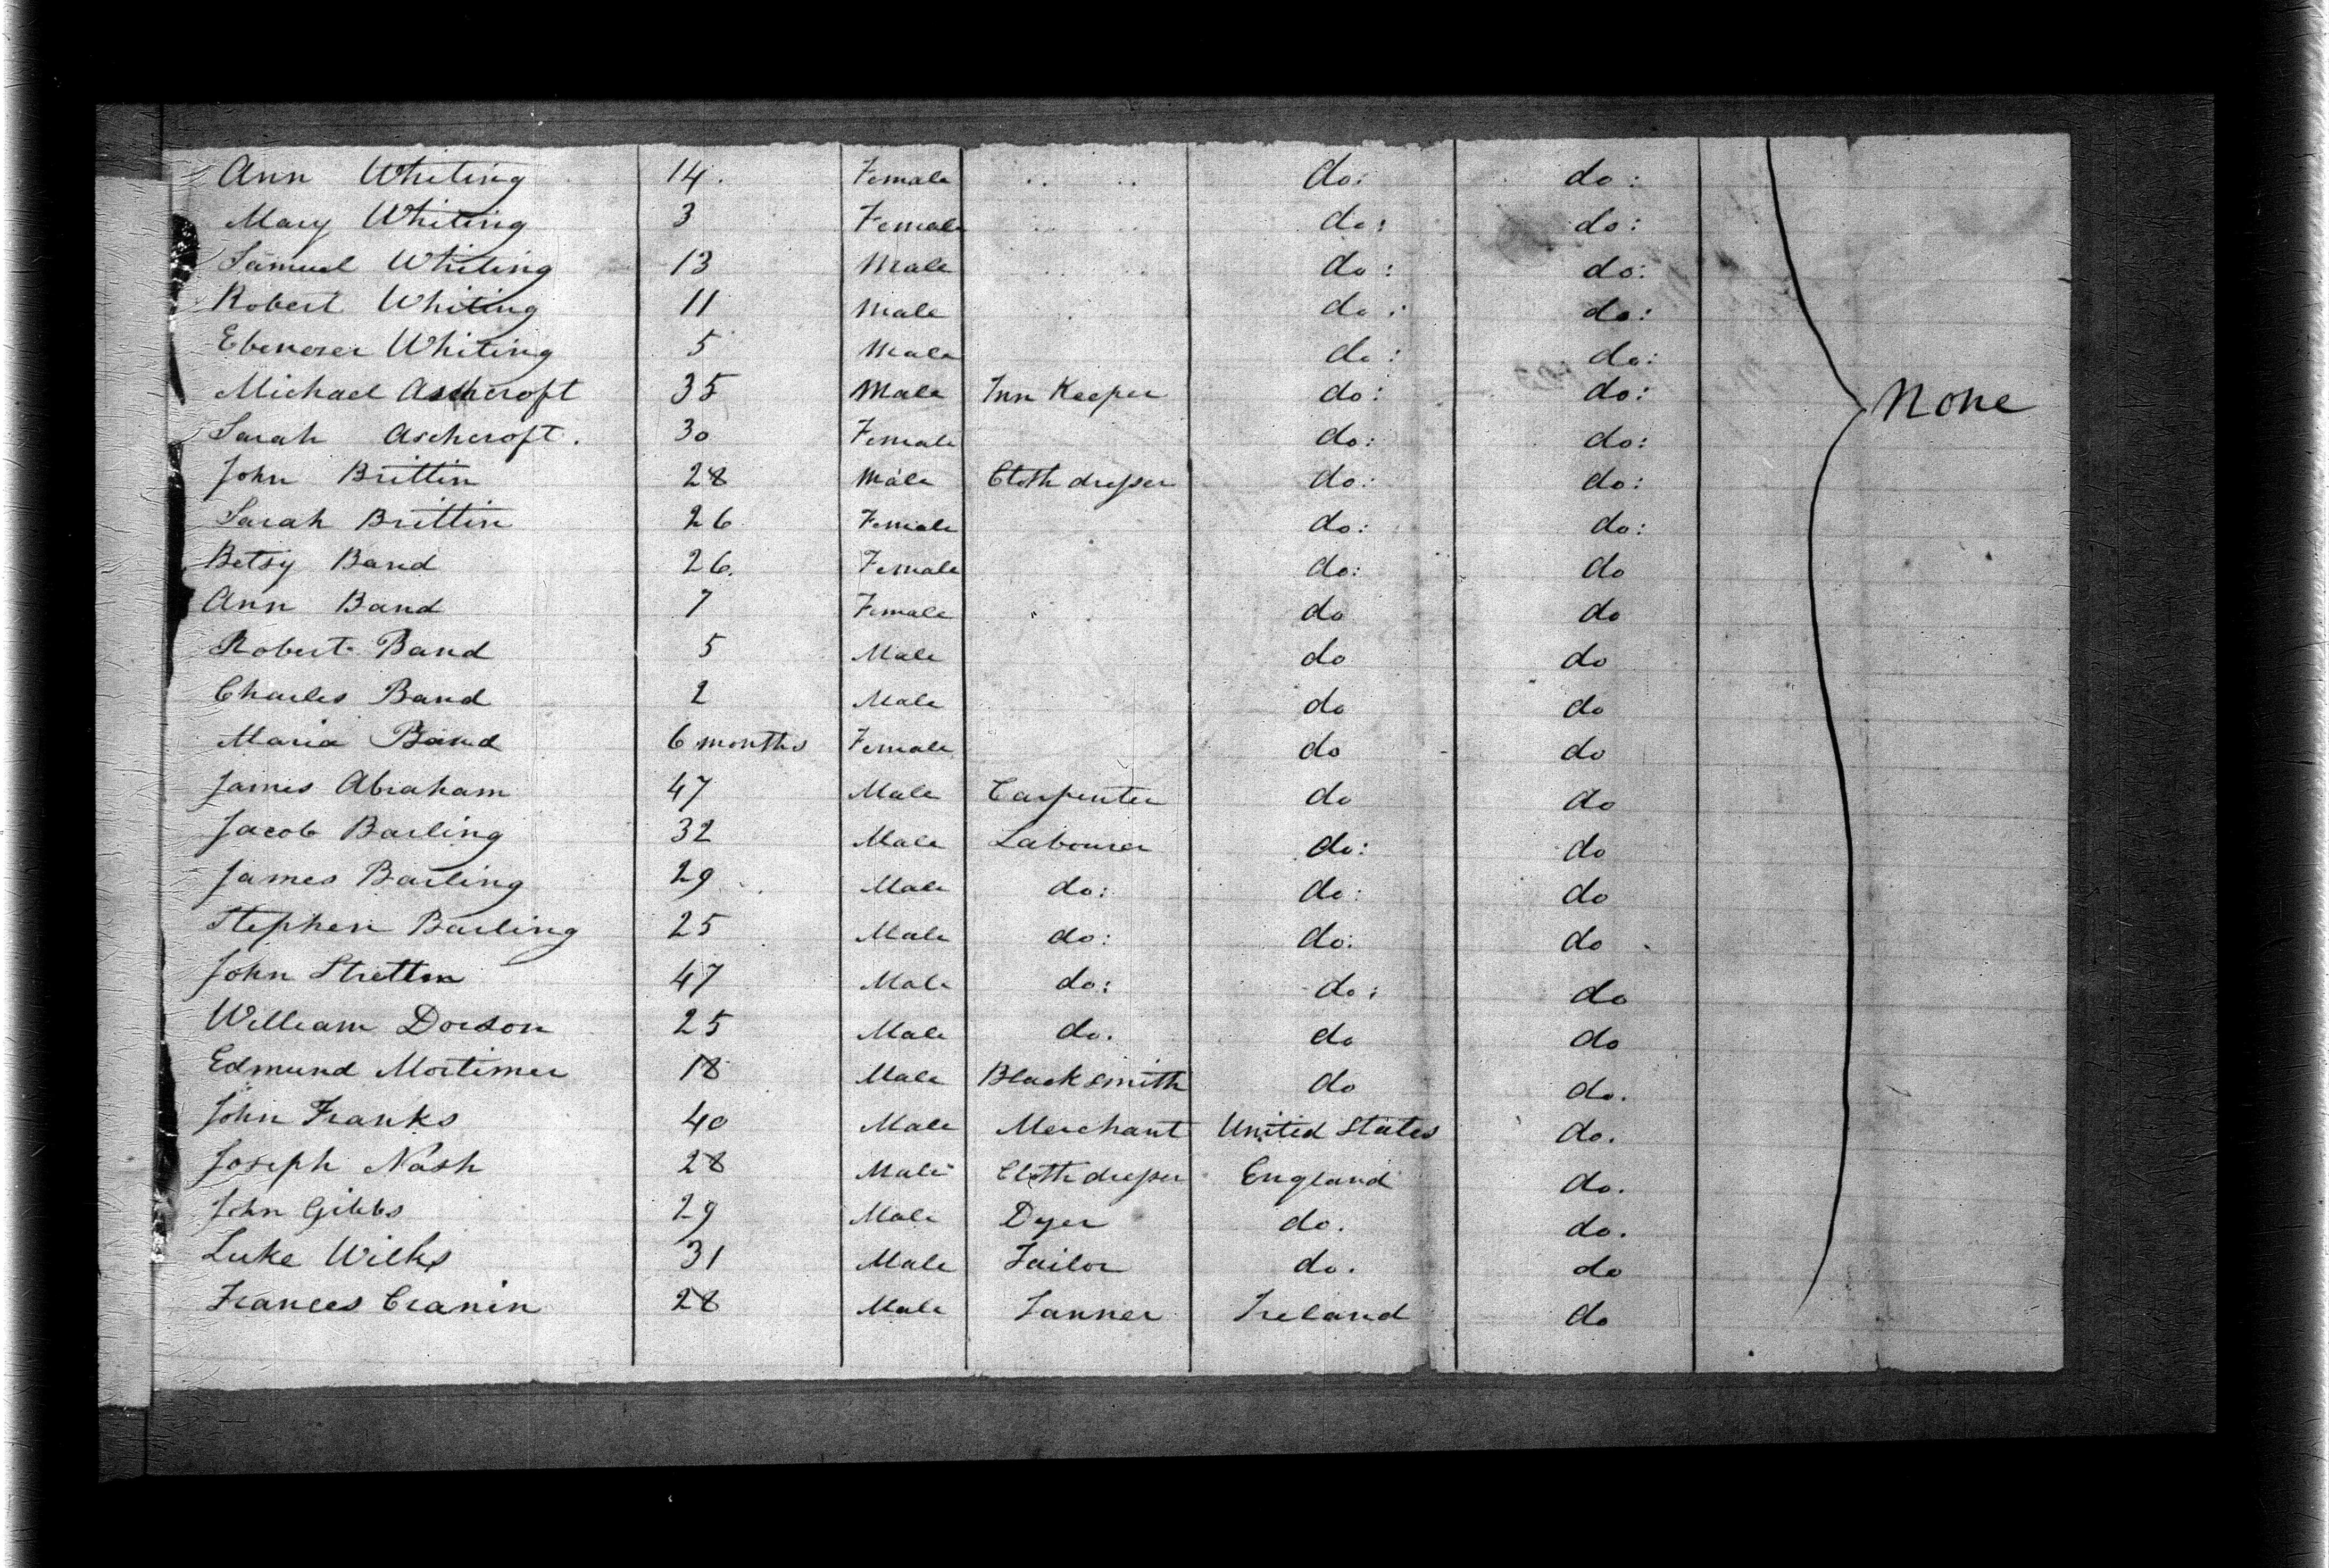 Ann Whiting 14. Female do: do:
Mary Whiting 3 Female do: do:
Samuel Whiting 13 Male do: do:
Robert Whiting 11 Male do: do:
Ebenezer Whiting 5 Male do: do:
Michael Aschcroft 35 Male Inn Keeper do: do: None
Sarah Aschcroft. 30 Female do: do:
John Brittin 28 Male Cloth dresser do: do:
Sarah Brittin 26 Female do: do:
Betsy Band 26. Female do: do
Ann Band 7 Female do do
Robert Band 5 Male do do
Charles Band 2 Male do do
Maria Band 6 months Female do do
James Abraham 47 Male Carpenter do do
Jacob Barling 32 Male Labourer do: do
James Barling 29 Male do: do: do
Stephen Barling 25 Male do: do: do
John Stretton 47 Male do: do: do
William Dodson 25 Male do. do do
Edmund Mortimer 18 Male Blacksmith do do.
John Franks 40 Male Merchant United States do.
Joseph Nash 28 Male Cloth dresser England do.
John Gibbs 29 Male Dyer do. do.
Luke Wilks 31 Male Tailor do. do
Frances Cranin 28 Male Tanner Ireland do